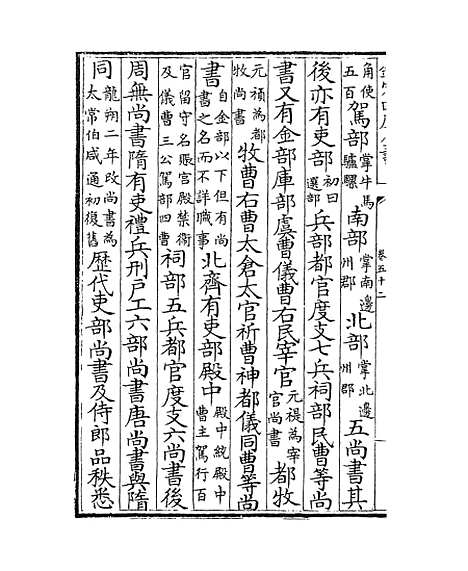 卷五十二
角使五百駕部掌牛馬驢騾南部掌南邊州郡北部掌北邊州郡五尚書其
後亦有吏部初曰選部兵部都官度支七兵祠部民曹等尚
書又有金部庫部虞曹儀曹右民宰官元禔為宰官尚書都牧
元禎為都牧尚書牧曹右曹太倉太官祈曹神都儀同曹等尚
書自金部以下但有尚書之名而不詳職事北齊有吏部殿中殿中統殿中曹主駕行百
官留守名賬宮殿禁衛及儀曹三公駕部四曹祠部五兵都官度支六尚書後
周無尚書隋有吏禮兵刑戶工六部尚書唐尚書與隋
同龍朔二年改尚書為太常伯咸通初復舊歷代吏部尚書及侍郎品秩悉